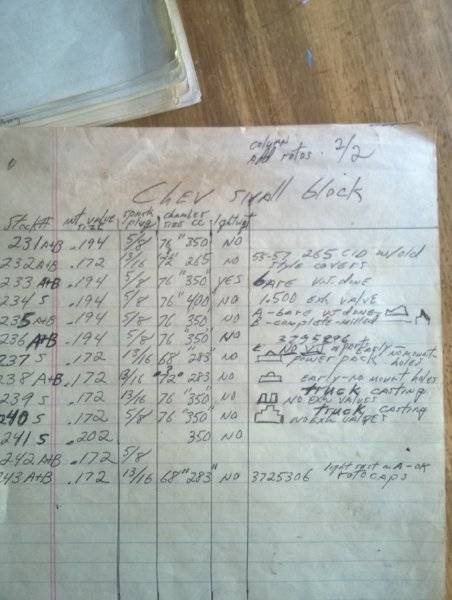 column
Add rotos. 2/2
Chev small block
Stock# int. valve size spark plug chamber size cc lightwgt
231 A+B .194 5/8 76" 350 NO
232 A+B .172 13/16 72" 265 NO 55-57 265 CID w/old style covers
233 A+B .194 5/8 76" 350" YES bare vat done
234 S .194 5/8 76 "400 NO 1.500 exh valve
235 A+B .194 5/8 76 350" NO A-bare vat done B-complete-milled
236 A+B .194 5/8 76 350 NO 3795896
237 S .172 13/16 68" 283" NO power pack early-no mount-holes
238 A+B .172 13/16 "72" 283 NO early-no mount holes
239 S .172 13/16 76 "350 NO truck casting NO exh valves
240 S .172 5/8 76 "350" NO truck casting NO exh valves
241 S .202 350 NO
242 A+B .172 5/8
243 A+B .172 13/16 68" 283" NO 3725306 light rust on A-OK rotocaps